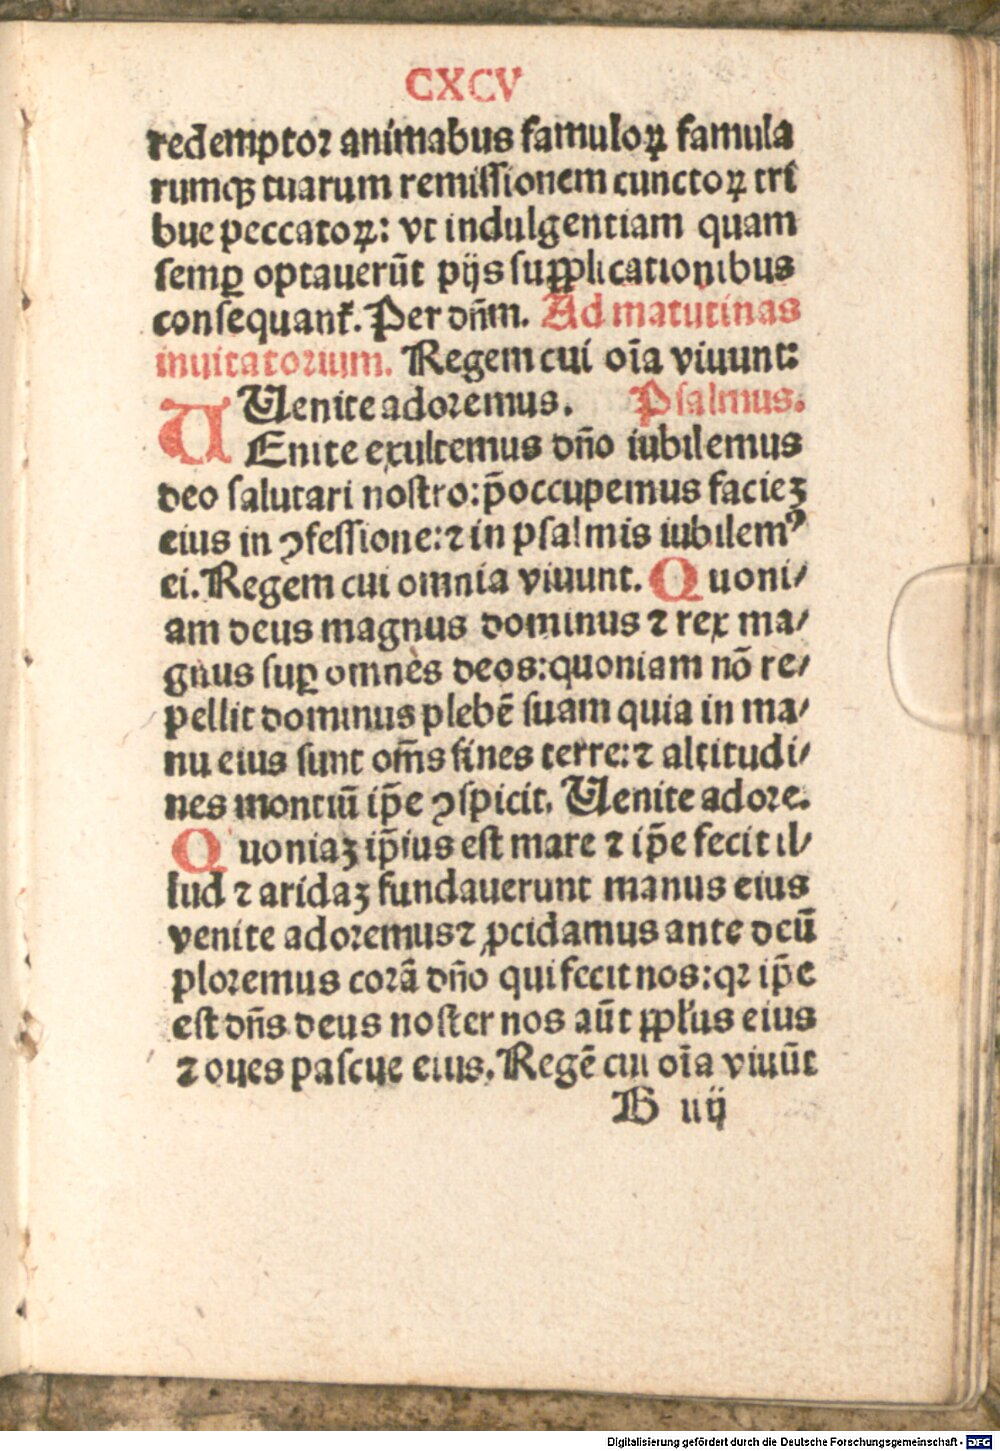 CXCV
redemptoꝛ animabus famuloꝝ famula
rumqꝫ tuarum remiſſionem cunctoꝝ tri
bue peccatoꝝ: vt indulgentiam quam
ſemꝑ optauerūt pijs ſupplicationibus
conſequant᷑. Per dn̄m. Ad matutinas
inuitatoꝛium. Regem cui oīa viuunt:
Uenite adoꝛemus. Pſalmus.
UEnite exultemus dn̄o iubilemus
deo ſalutari noſtro: p̄occupemus facieꝫ
eius in ↄfeſſione: ⁊ in pſalmis iubilemꝰ
ei. Regem cui omnia viuunt. Quoni/
am deus magnus dominus ⁊ rex ma/
gnus ſuꝑ omnes deos: quoniam nō re/
pellit dominus plebē ſuam quia in ma/
nu eius ſunt om̄s fines terre: ⁊ altitudi/
nes montiū ip̄e ↄſpicit. Uenite adoꝛe.
Quoniaꝫ ip̄ius eſt mare ⁊ ip̄e fecit il/
lud ⁊ aridaꝫ fundauerunt manus eius
venite adoꝛemus ⁊ ꝓcidamus ante deū
ploꝛemus coꝛā dn̄o qui fecit nos: qꝛ ip̄e
eſt dn̄s deus noſter nos aūt ppl̓us eius
⁊ oues paſcue eius. Regē cui oīa viuūt
B iiij
Digitalisierung gefördert durch die Deutsche Forschungsgemeinschaft - DFG